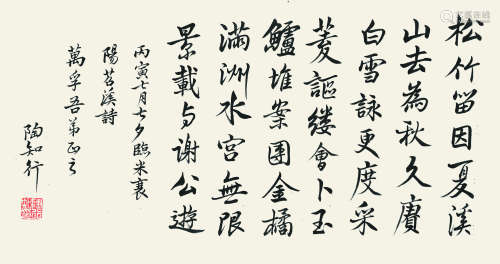 松竹留因夏溪
山去為秋久賡
白雪詠更度采
菱謳縷會卜玉
鱸堆案團金橘
滿洲水宮無限
景載与谢公遊
丙寅七月七夕臨米襄
陽苕溪詩
萬孚吾弟正之
陶知行